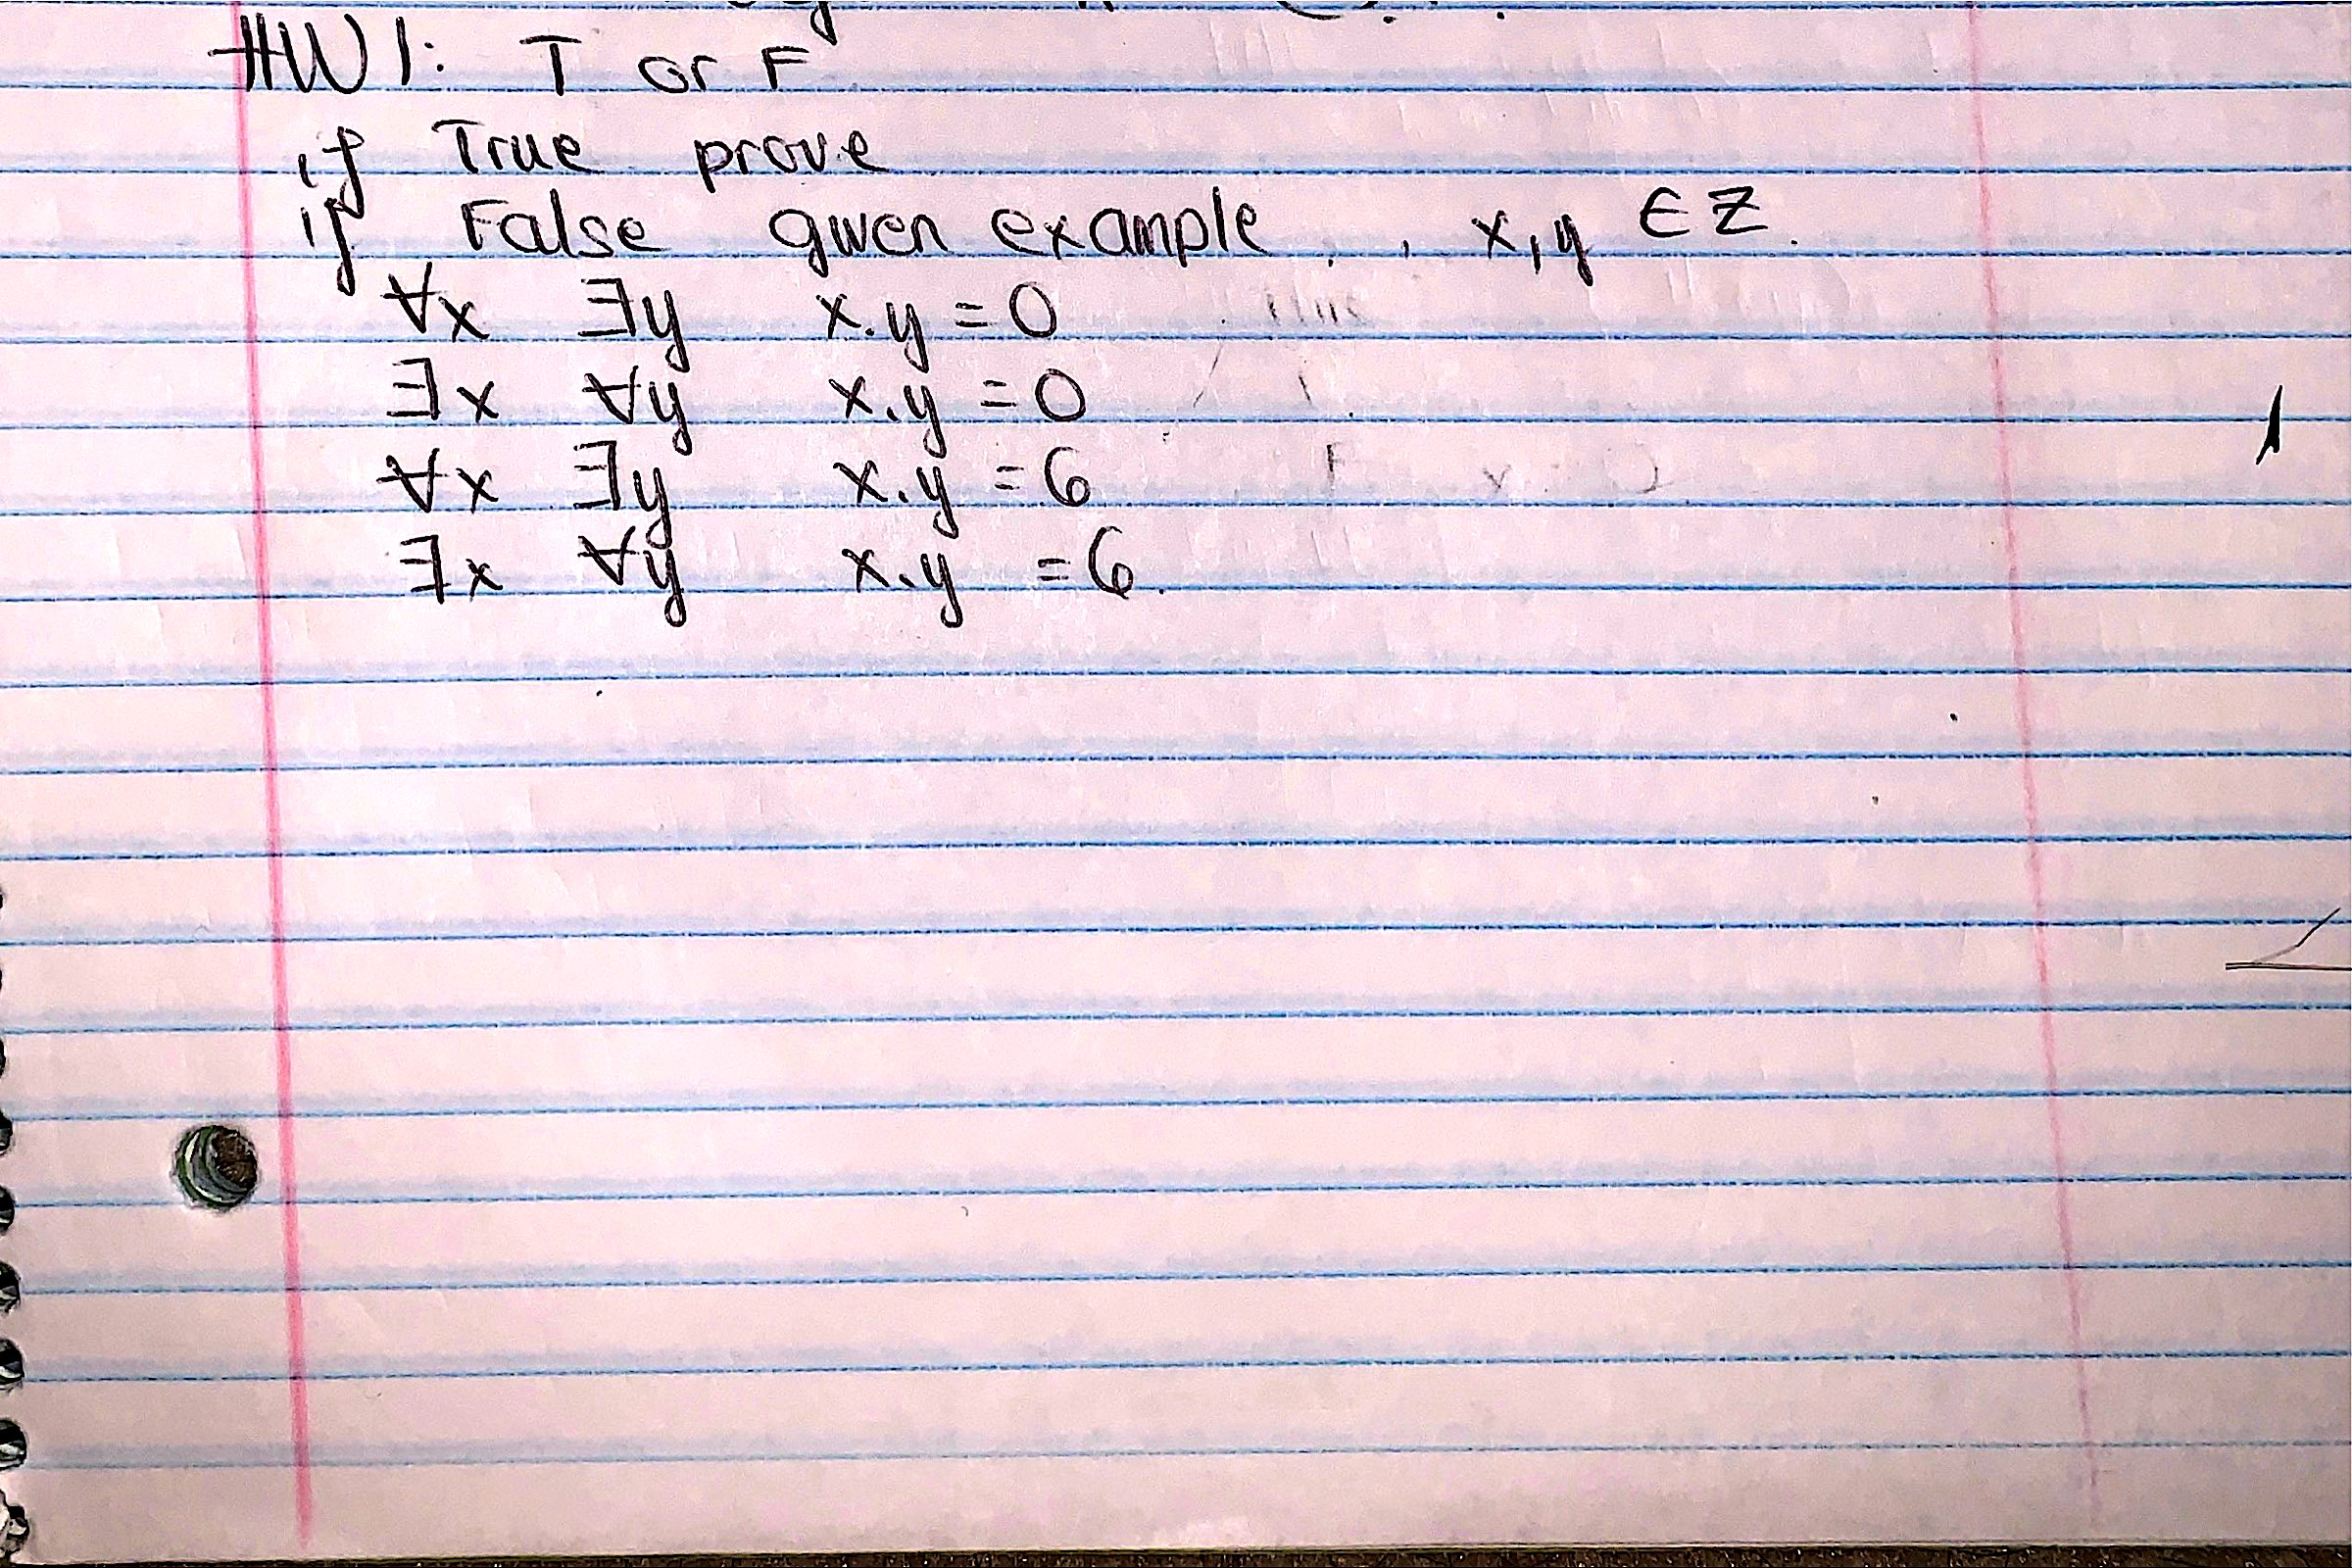 HW 1: T or F
if True prove
if False given example, x,y ∈ Z.
∀x ∃y x.y = 0
∃x ∀y x.y = 0
∀x ∃y x.y = 6
∃x ∀y x.y = 6.